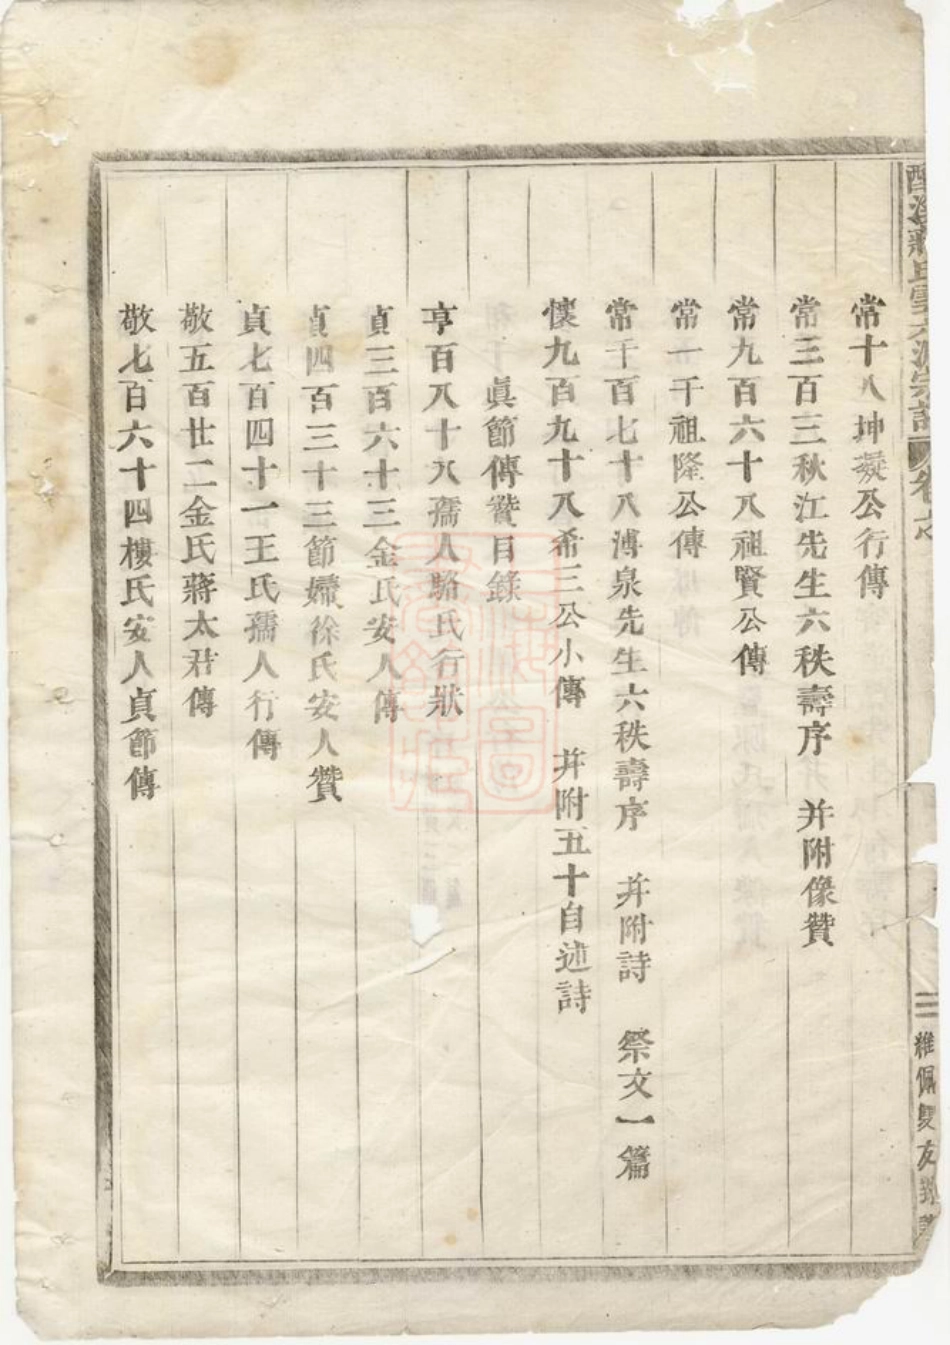 常十八坤凝公行傳
常三百三秋江先生六秩壽序 并附像贊
常九百六十八祖賢公傳
常一千祖隆公傳
常千百七十八溥泉先生六秩壽序 并附詩 祭文一篇
懷九百九十八希三公小傳 并附五十自述詩
眞節傳贊目錄
亨百八十六孺人駱氏行狀
貞三百六十三金氏安人傳
貞四百三十三節孀徐氏安人贊
貞七百四十一王氏孺人行傳
敬五百廿二金氏蔣太君傳
敬七百六十四樓氏安人貞節傳
蔣氏 宗譜 卷之
三 維佩雙友